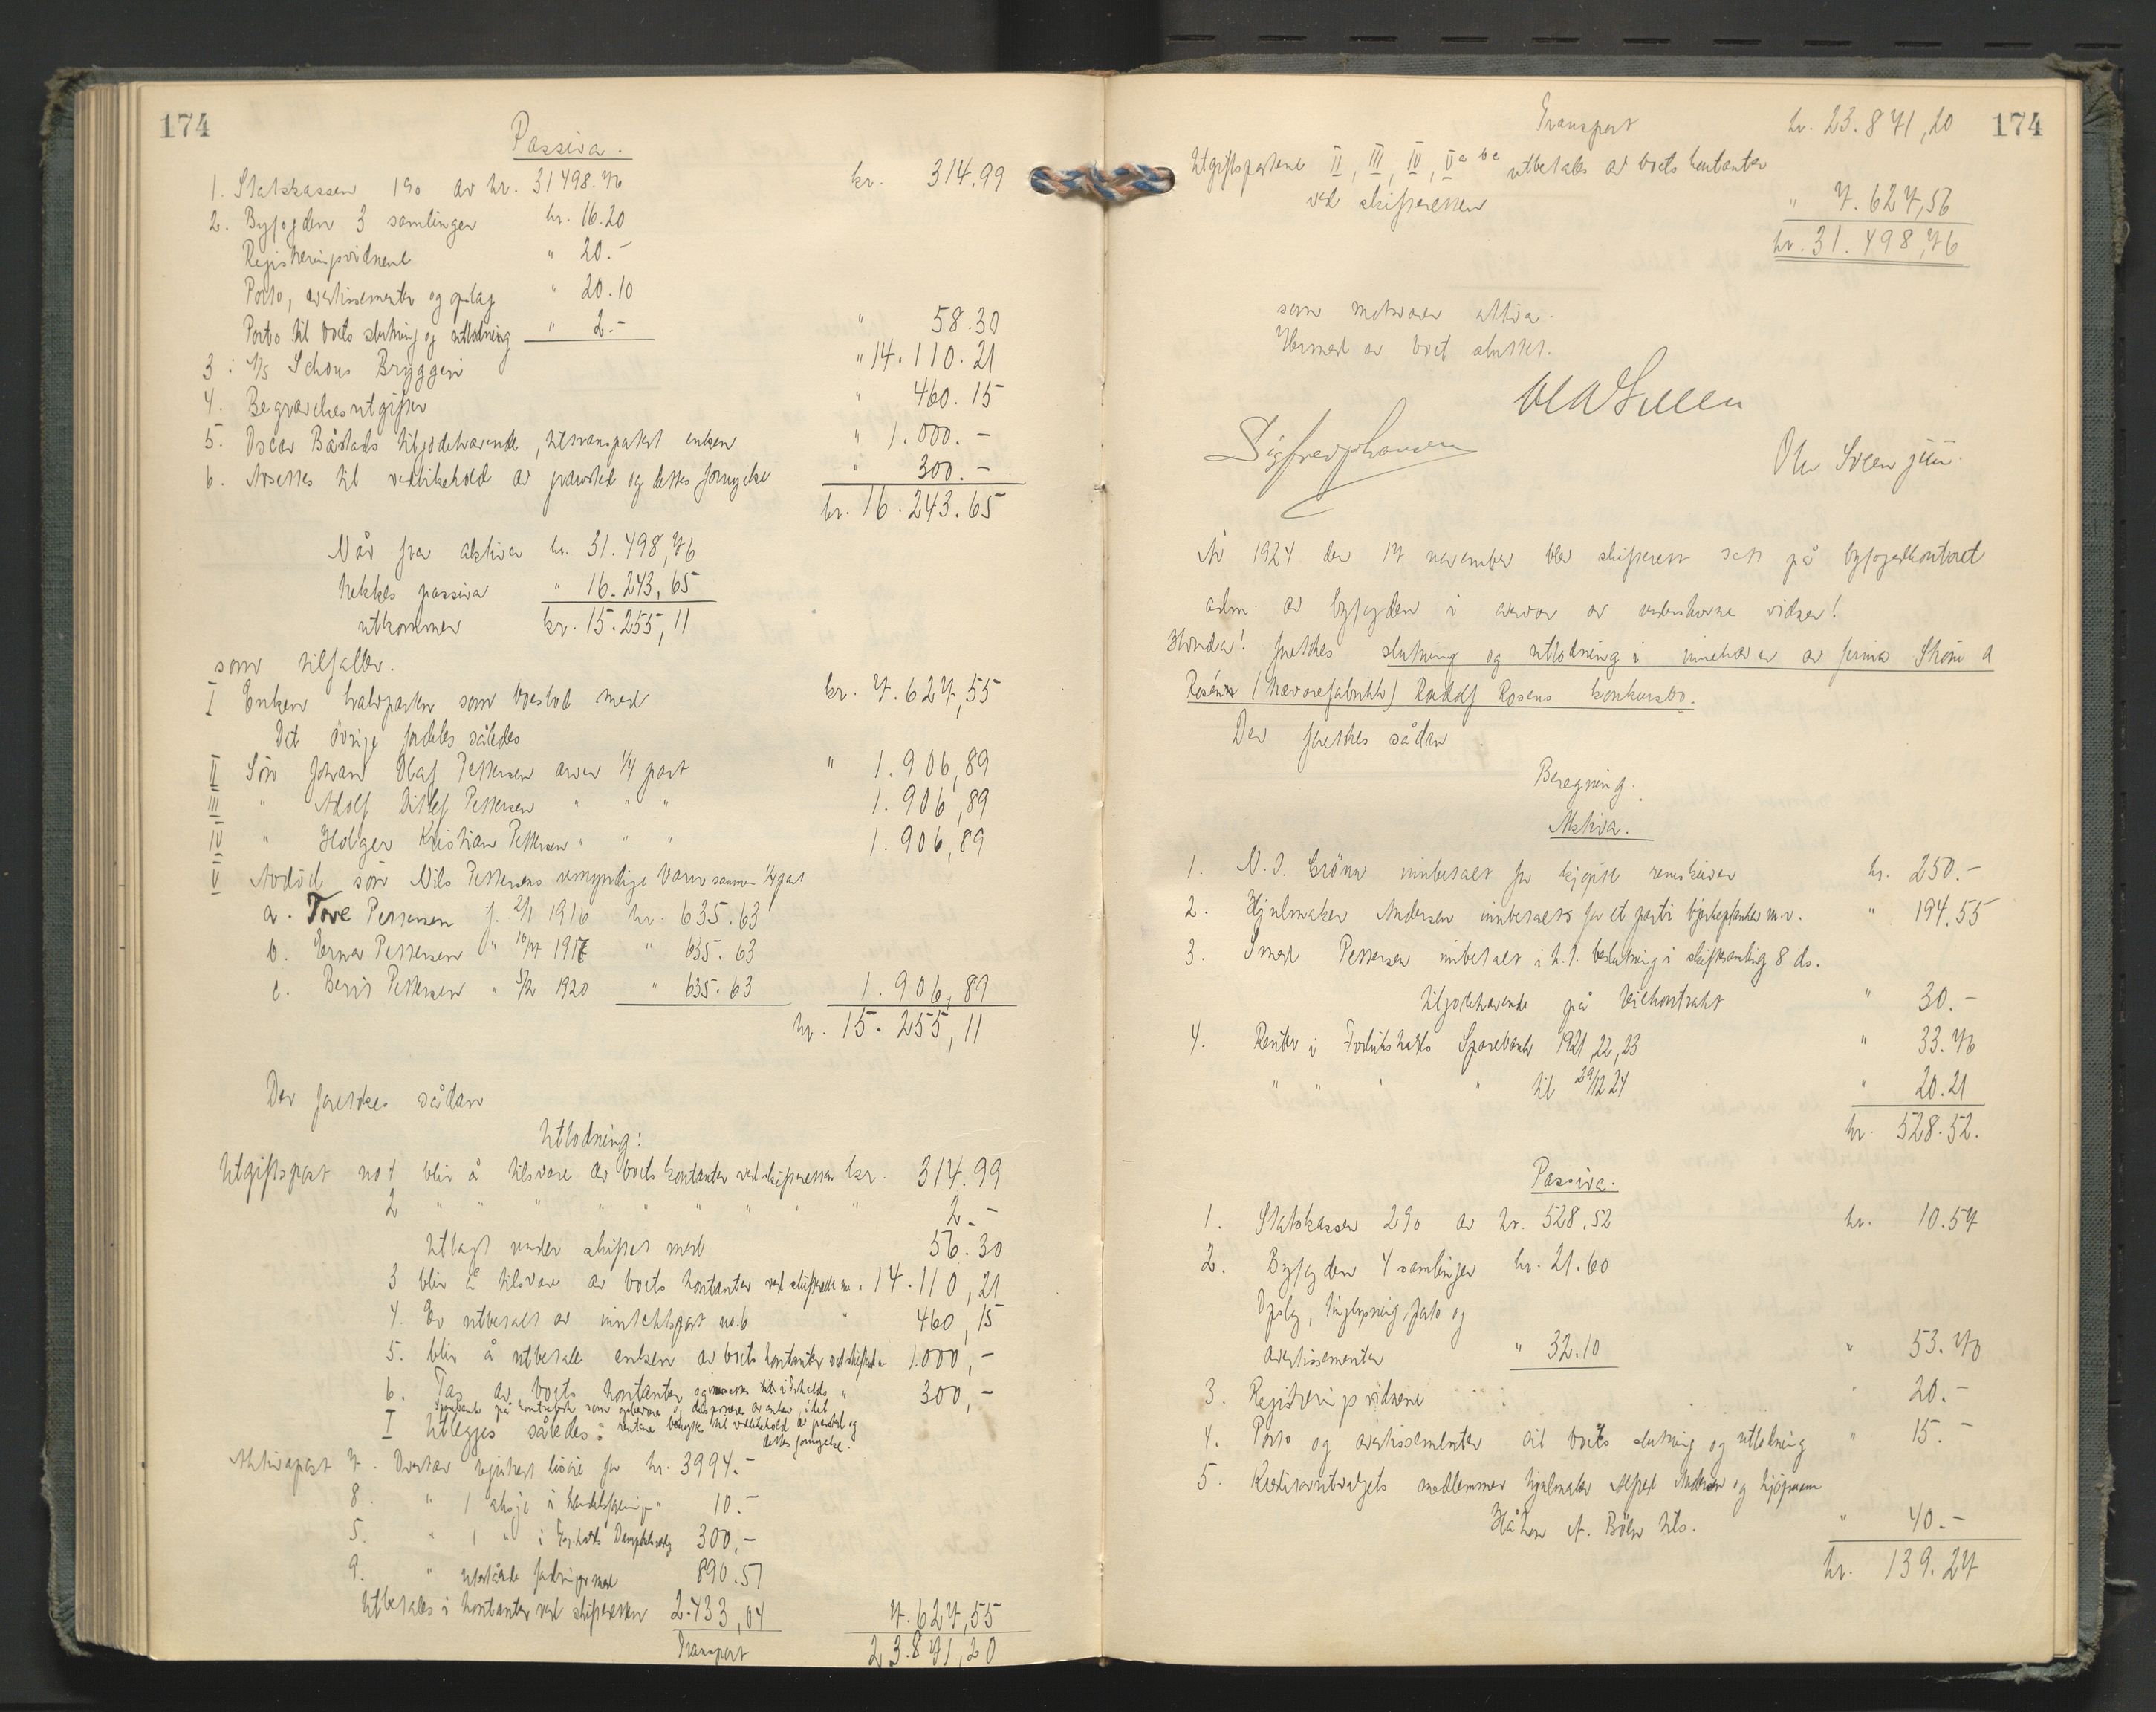 174
Passiva.
1. Statskassen 1% av kr. 31498.76 kr. 314.99
2. Byfogden 3 samlinger kr. 16.20
Registreringsvidnene " 20.-
Porto, avertissementer og oplag " 20.10
Porto til boets slutning og utlodning " 2.- " 58.30
3: A/S Schous Bryggeri " 14.110.21
4. Begravelsesutgifter " 460.15
5. Oscar Bårstads tilgodehavende, tiltransportert enken " 1.000.-
6. Avsettes til vedlikehold av gravsted og dettes fornyelse " 300.-
kr. 16.243.65
Når fra aktiva kr. 31.498,76
trekkes passiva " 16.243,65
utkommer kr. 15.255,11
som tilfaller.
I Enken halvparten som boeslod med kr. 7.627,55
Det övrige fordeles således
II Sön Johan Olaf Pettersen arver 1/4 part " 1.906,89
III " Adolf Ditlef Pettersen " " " 1.906,89
IV " Holger Kristian Pettersen " " " 1.906,89
V Avdöd sön Nils Pettersens umyndige barn sammen 1/4 part
a. Tove Pettersen f. 2/1 1916 kr. 635.63
b. Erna Pettersen " 10/7 1917 " 635.63
c. Berit Pettersen " 5/2 1920 " 635.63 1.906,89
kr. 15.255,11
Der foretokes sådan
Utlodning:
Utgiftspost no 1 blir å tilsvare av boets kontanter ved skifteretten kr. 314.99
2 " " " " " " " " 2.-
Utlagt under skiftet med 56.30
3 blir å tilsvare av boets kontanter ved skifteretten m. 14.110,21
4. Er utbetalt av inntektspost no. 6 " 460,15
5. blir å utbetale enken av boets kontanter ved skifter 1000,-
6. Tas av boets kontanter og " 300,-
rentene benyttes til vedlikehold av gravsted og
dettes fornyelse.
I Utlegges således:
Aktivapost 7. Overtar registrert lösöre for kr. 3994.-
8. " 1 aksje i " 10.-
5. " 1 " i 300,-
9. " utestående fordringer med 890.51
Utbetales i kontanter ved skifteretten 2.433,04 7.627,55
Transport 23.871,20
174
Transport kr. 23.871,20
Utgiftspostene II, III, IV, V a b c utbetales av boets kontanter
ved skifteretten " 7.627,56
kr. 31.498,76
som motsvarer aktiva.
Hermed er boet sluttet.
Ole Sveen jun.
År 1924 den 17 november blev skifterett satt på byfogedkontoret
adm. av byfogden i nærvær av underskrevne vidner!
Hvorda! foretokes slutning og utlodning i innehaver av firma Ström &
Rosén (trevarefabrikk) Rudolf Rosens konkursbo.
Der foretokes sådan
Beregning.
Aktiva.
1. N. J. Grönn innbetalt for kjöpte remskiver kr. 250.-
2. Hjulmaker Andersen innbetalt for et parti bjerkeplanker m.v. " 194.55
3. Smed Pettersen innbetalt i h. t. beslutning i skiftesamling 8 ds.
tilgodehavende på leiekontrakt " 30.-
4. Renter i Fredrikstads Sparebank 1921, 22, 23 " 33.76
" " " " til 29/12 24 " 20.21
kr. 528.52.
Passiva.
1. Statskassen 2% av kr. 528.52 kr. 10.57
2. Byfogden 4 samlinger kr. 21.60
Oplag, tinglysning, porto og
avertissementer " 32.10 " 53.70
3. Registreringsvidnene " 20.-
4. Porto og avertissementer til boets slutning og utlodning " 15.-
5. Kreditorutvalgets medlemmer hjulmaker Alfred Andersen og kjöpmann
Håkon A. Böhn tils. " 40.-
kr. 139.27